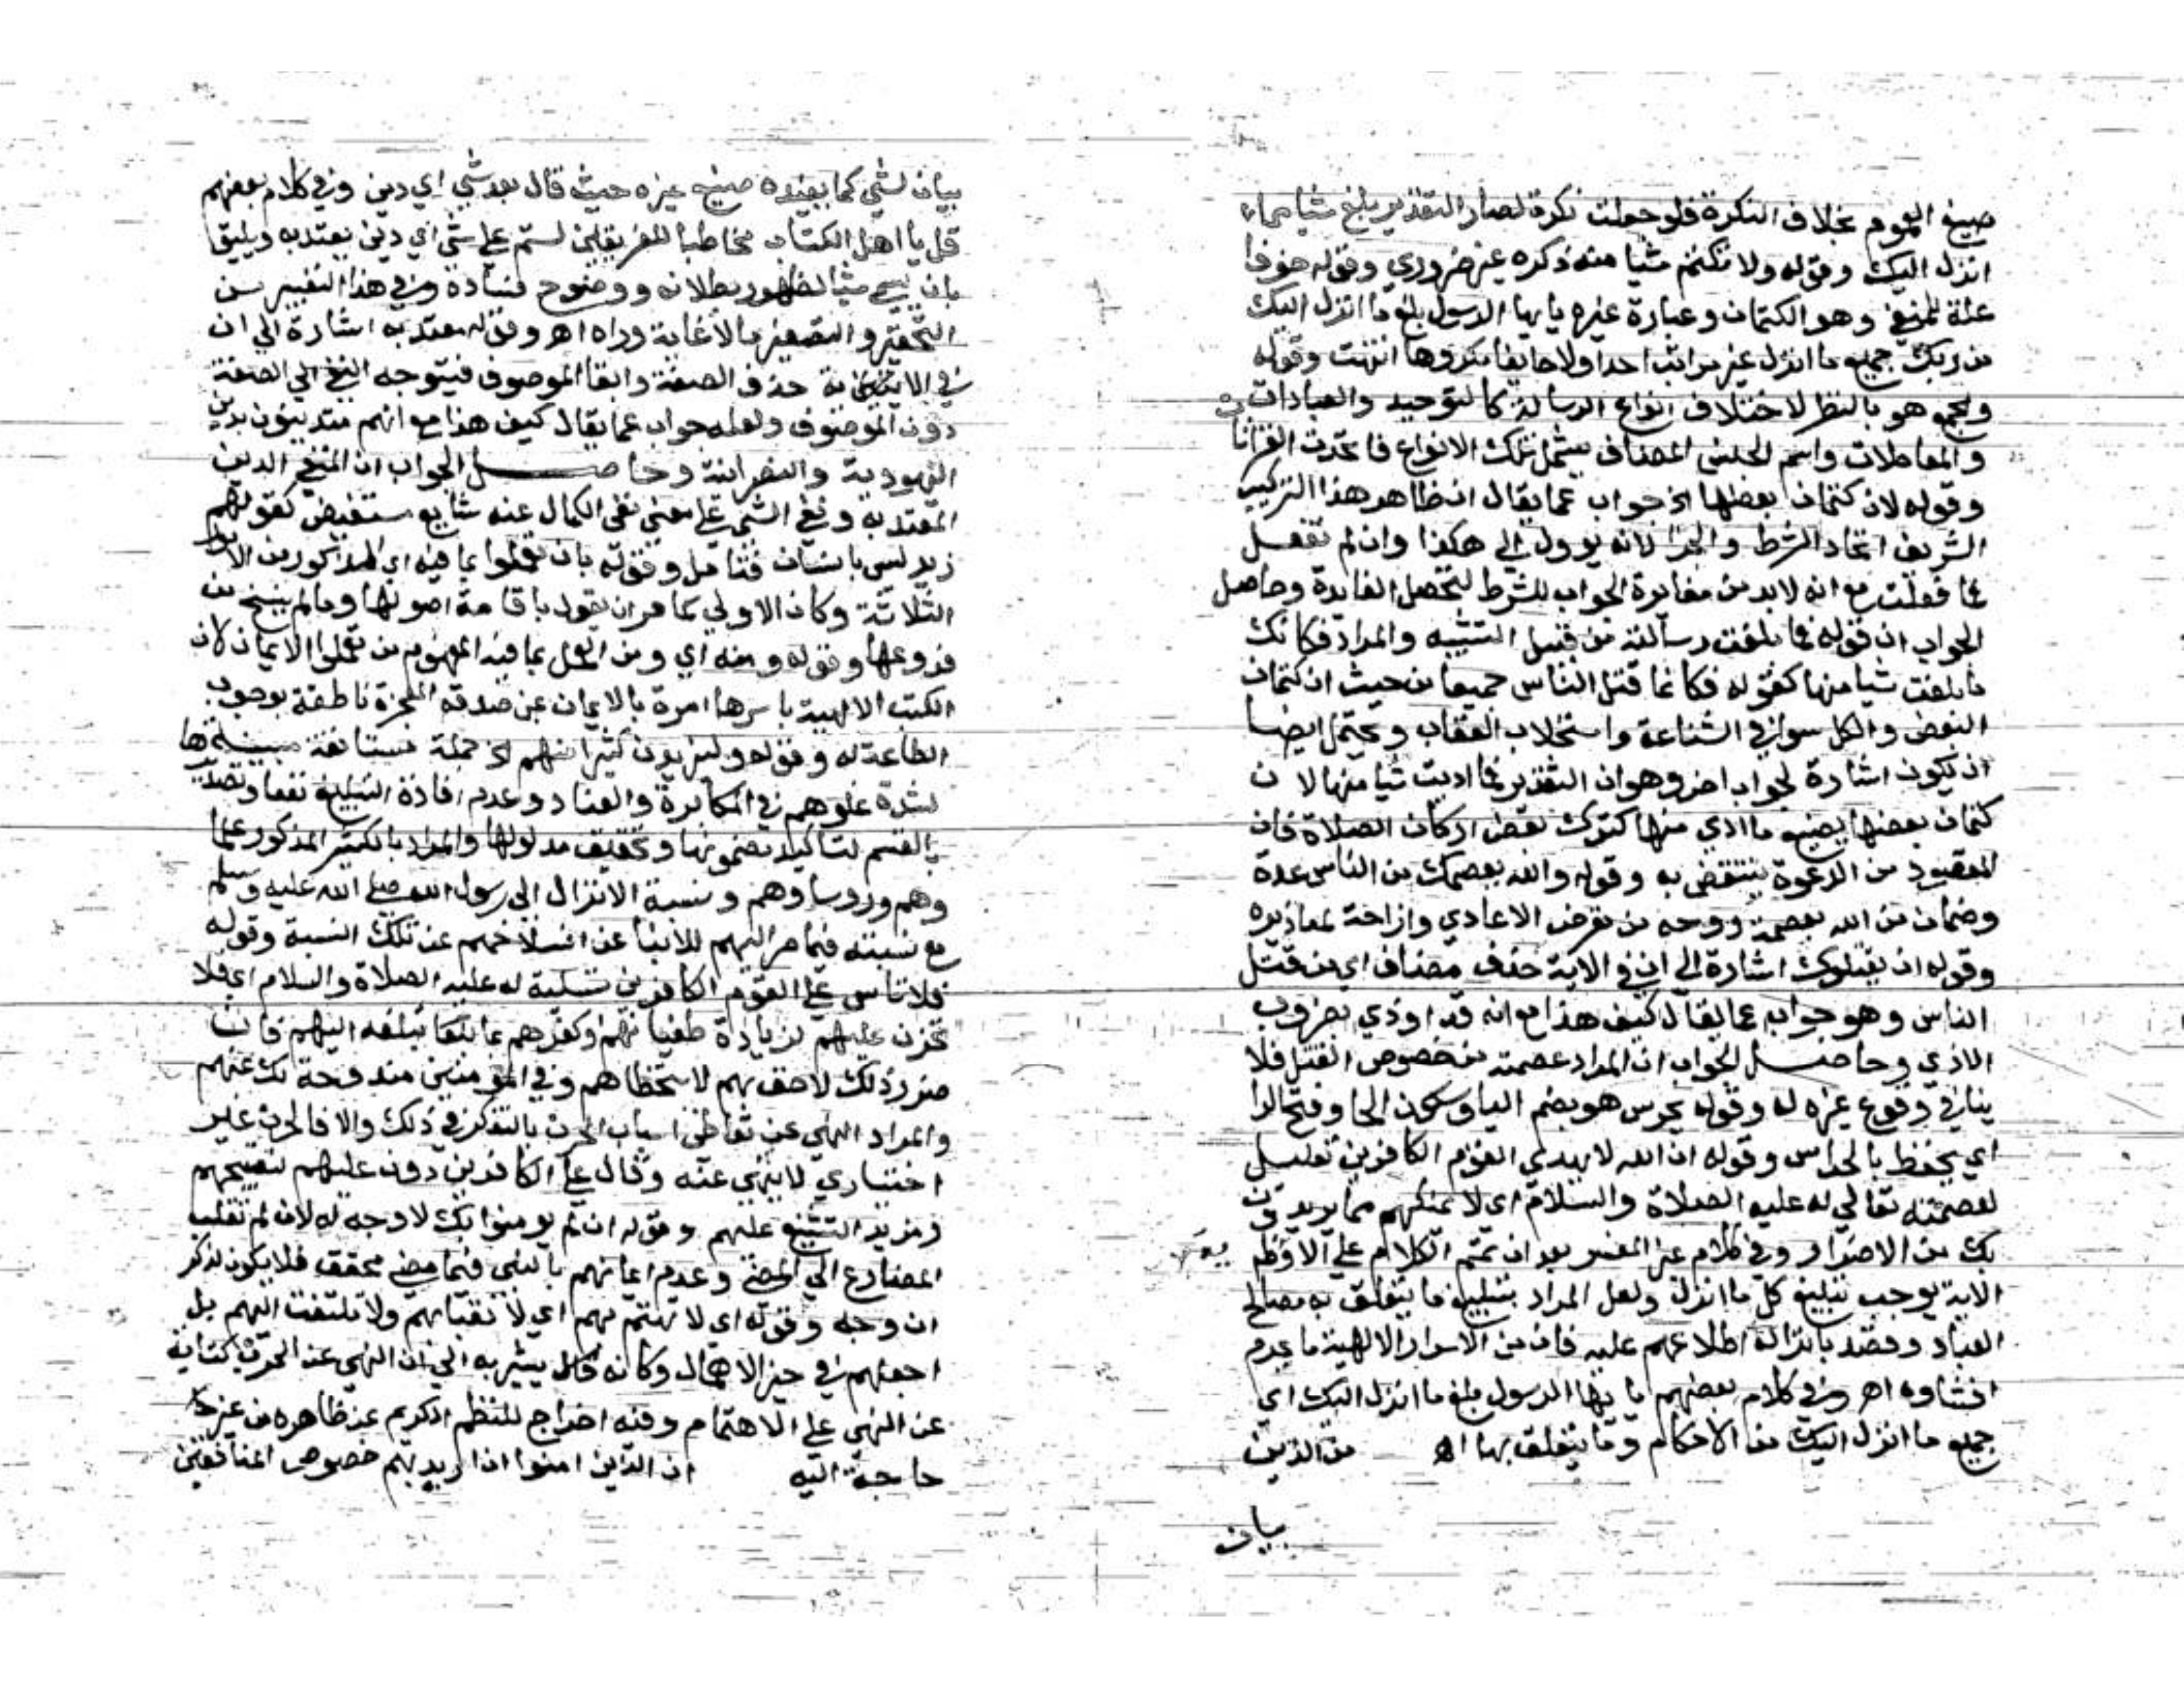 صيغ العموم بخلاف النكرة فلو جعلت نكرة لصار التقدير بلغ شيا مما
انزل اليك وقوله ولا تكتم شيا منه ذكره غير ضروري وقوله خوفا
علة للمنفي وهو الكتمان وعبارة غيره يايها الرسول بلغ ما انزل اليك
من ربك جميع ما انزل غير مراقب احدا ولا خايفا مكروها انتهت وقوله
والجمع هو بالنظر لاختلاف انواع الرسالة كالتوحيد والعبادات
والمعاملات واسم الجنس المضاف يشمل تلك الانواع فاتحدت القراتا
وقوله لان كتمان بعضها الخ جواب عما يقال ان ظاهر هذا التركيب
الشريف اتحاد الشرط والجزا لانه يوول الى هكذا وان لم تفعل
فما فعلت مع انه لابد من مغايرة الجواب للشرط لتحصل الفايدة وحاصل
الجواب ان قوله فما بلغت رسالته من قبيل التشبيه والمراد فكانك
ما بلغت شيا منها كقوله فكانما قتل الناس جميعا من حيث ان كتمان
البعض والكل سوا في الشناعة واستجلاب العقاب ويحتمل ايضا
ان يكون اشارة لجواب اخر وهو ان التقدير فما اديت شيا منها لان
كتمان بعضها يضيع ما ادي منها كترك بعض اركان الصلاة فان
المقصود من الدعوة ينتقض به وقوله والله يعصمك من الناس عدة
وضمان من الله بعصمة روحه من تعرض الاعادي وازاحة لمعاذيره
وقوله ان يقتلوك اشارة الى ان في الاية حذف مضاف اي من قتل
الناس وهو جواب عما يقال كيف هذا مع انه قد اوذي بضروب
الاذي وحاصل الجواب ان المراد عصمته من خصوص القتل فلا
ينافي وقوع غيره له وقوله يحرس هو بضم اليا وسكون الحا وفتح الرا
اي يحفظ بالحراس وقوله ان الله لا يهدي القوم الكافرين تعليل
لعصمته تعالى له عليه الصلاة والسلام اي لا يمكنهم مما يريدون
بك من الاضرار وفي كلام غير المفسر بعد ان تمم الكلام على الا وظاهر
الاية يوجب تبليغ كل ما انزل ولعل المراد بتبليغ ما يتعلق به مصالح
العباد وقصد بانزاله اطلاعهم عليه فان من الاسرار الالهية ما يحرم
افشاوه اهـ وفي كلام بعضهم يا يها الرسول بلغ ما انزل اليك اي
جميع ما انزل اليك من الاحكام وما يتعلق بها اهـ من الذين
بيان
بيان لشي كما يفيده صنيع غيره حيث قال بعد شي اي دين وفي كلام بعضهم
قل يا اهل الكتاب مخاطبا للفريقين لستم على شي اي دين يعتد به ويليق
بان يسمى شيا لظهور بطلانه ووضوح فساده وفي هذا التعبير من
التحقير والتصغير ما لا غاية وراه اهـ وقوله معتد به اشارة الى ان
في الاية حذف الصفة وابقا الموصوف فيتوجه النفي الى الصفة
دون الموصوف ولعله جواب عما يقال كيف هذا مع انهم متدينون بدين
اليهودية والنصرانية وحاصل الجواب ان المنفي الدين
المعتد به ونفي الشي على معنى نفي الكمال عنه شايع مستفيض كقولهم
زيد ليس بانسان فتامل وقوله بان تعملوا بما فيه اي المذكور من الامور
الثلاثة وكان الاولى كما مر ان يقول باقامة اصولها وما لم ينسخ من
فروعها وقوله ومنه اي ومن العمل بما فيه المفهوم من تعملوا الايمان لان
الكتب الالهية باسرها امرة بالايمان بمن صدقه المعجزة ناطقة بوجوب
الطاعة له وقوله وليزيدن كثيرا منهم الخ جملة مستانفة مبينة
لشدة غلوهم في المكابرة والعناد وعدم افادة التبليغ نفعا وتصديرها
بالقسم لتاكيد مضمونها وتحقيق مدلولها والمراد بالكثير المذكور علما
وهم وروساوهم ونسبة الانزال الى رسول الله صلى الله عليه وسلم
مع نسبته فيما مر اليهم للانبا عن انسلاخهم عن تلك النسبة وقوله
فلا تاس على القوم الكافرين تسلية له عليه الصلاة والسلام اي فلا
تحزن عليهم لزيادة طغيانهم وكفرهم بما تبلغه اليهم فان
ضرر ذلك لاحق بهم لا يتخطاهم وفي المومنين مندوحة لك عنهم
والمراد النهي عن تعاطي اسباب الحزن بالتفكر في ذلك والا فالحزن غير
اختياري لا ينهى عنه وقال على الكافرين دون عليهم لتقبيحهم
ومزيد التشنيع عليهم وقوله ان لم يومنوا بك لا وجه له لان لم تقلب
المضارع الى المضي وعدم ايمانهم بالنبي فيما مضى محقق فلا يكون لذكر
ان وجه وقوله اي لا تهتم بهم اي لا تعبا بهم ولا تلتفت اليهم بل
اجعلهم في حيز الاهمال وكانه يشير به الى ان النهي عن الحزن كناية
عن النهي على الاهتمام وفيه اخراج للنظم الكريم عن ظاهره من غير
حاجة اليه ان الذين امنوا اذا اريد بهم خصوص المنافقين